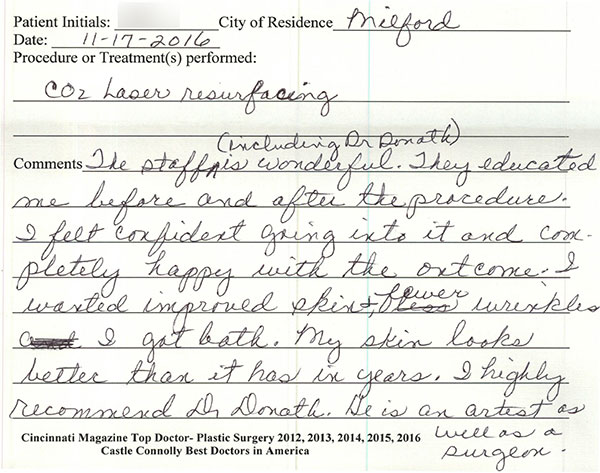 Patient Initials: City of Residence Milford
Date: 11-17-2016
Procedure or Treatment(s) performed:
CO2 Laser resurfacing
(including Dr Donath)
Comments The staff is wonderful. They educated
me before and after the procedure.
I felt confident going into it and com-
pletely happy with the outcome. I
wanted improved skin &, fewer wrinkles
I got both. My skin looks
better than it has in years. I highly
recommend Dr Donath. He is an artist as
well as a
surgeon.
Cincinnati Magazine Top Doctor- Plastic Surgery 2012, 2013, 2014, 2015, 2016
Castle Connolly Best Doctors in America